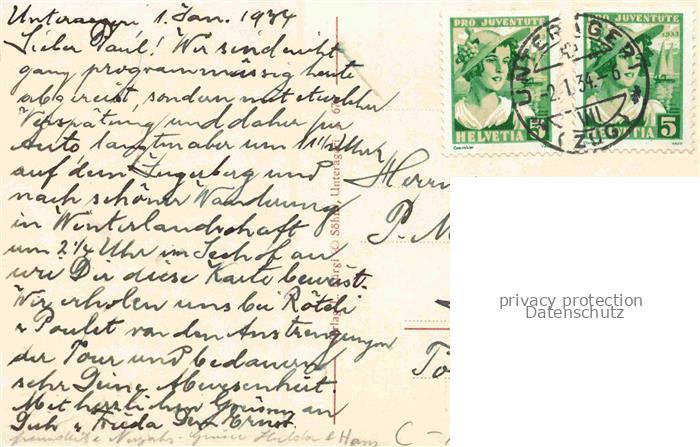 Unteraegeri 1. Jan. 1934
Lieber Paul! Wir sind nicht
ganz programmässig heute
abgereist, sondern mit etwelcher
Verspätung und daher per
Auto, langten aber um 11½ Uhr
auf dem Zugerberg und
nach schöner Wanderung
in Winterlandschaft
um 2¼ Uhr im Seehof an
wie Dir diese Karte beweist.
Wir erholen uns bei Röteli
u Poulet von den Anstrengungen
der Tour und bedauern
sehr Deine Abwesenheit.
Mit herzlichen Grüssen an
Dich u Frieda Dein Ernst.
Neujahrs-Grüsse Hilda & Hans
PRO JUVENTUTE
HELVETIA 5
PRO JUVENTUTE
1933
HELVETIA 5
UNTERÄGERI
2.I.34. 6
(ZUG)
Söhne, Unterägeri
Herrn
P.
C -
privacy protection
Datenschutz